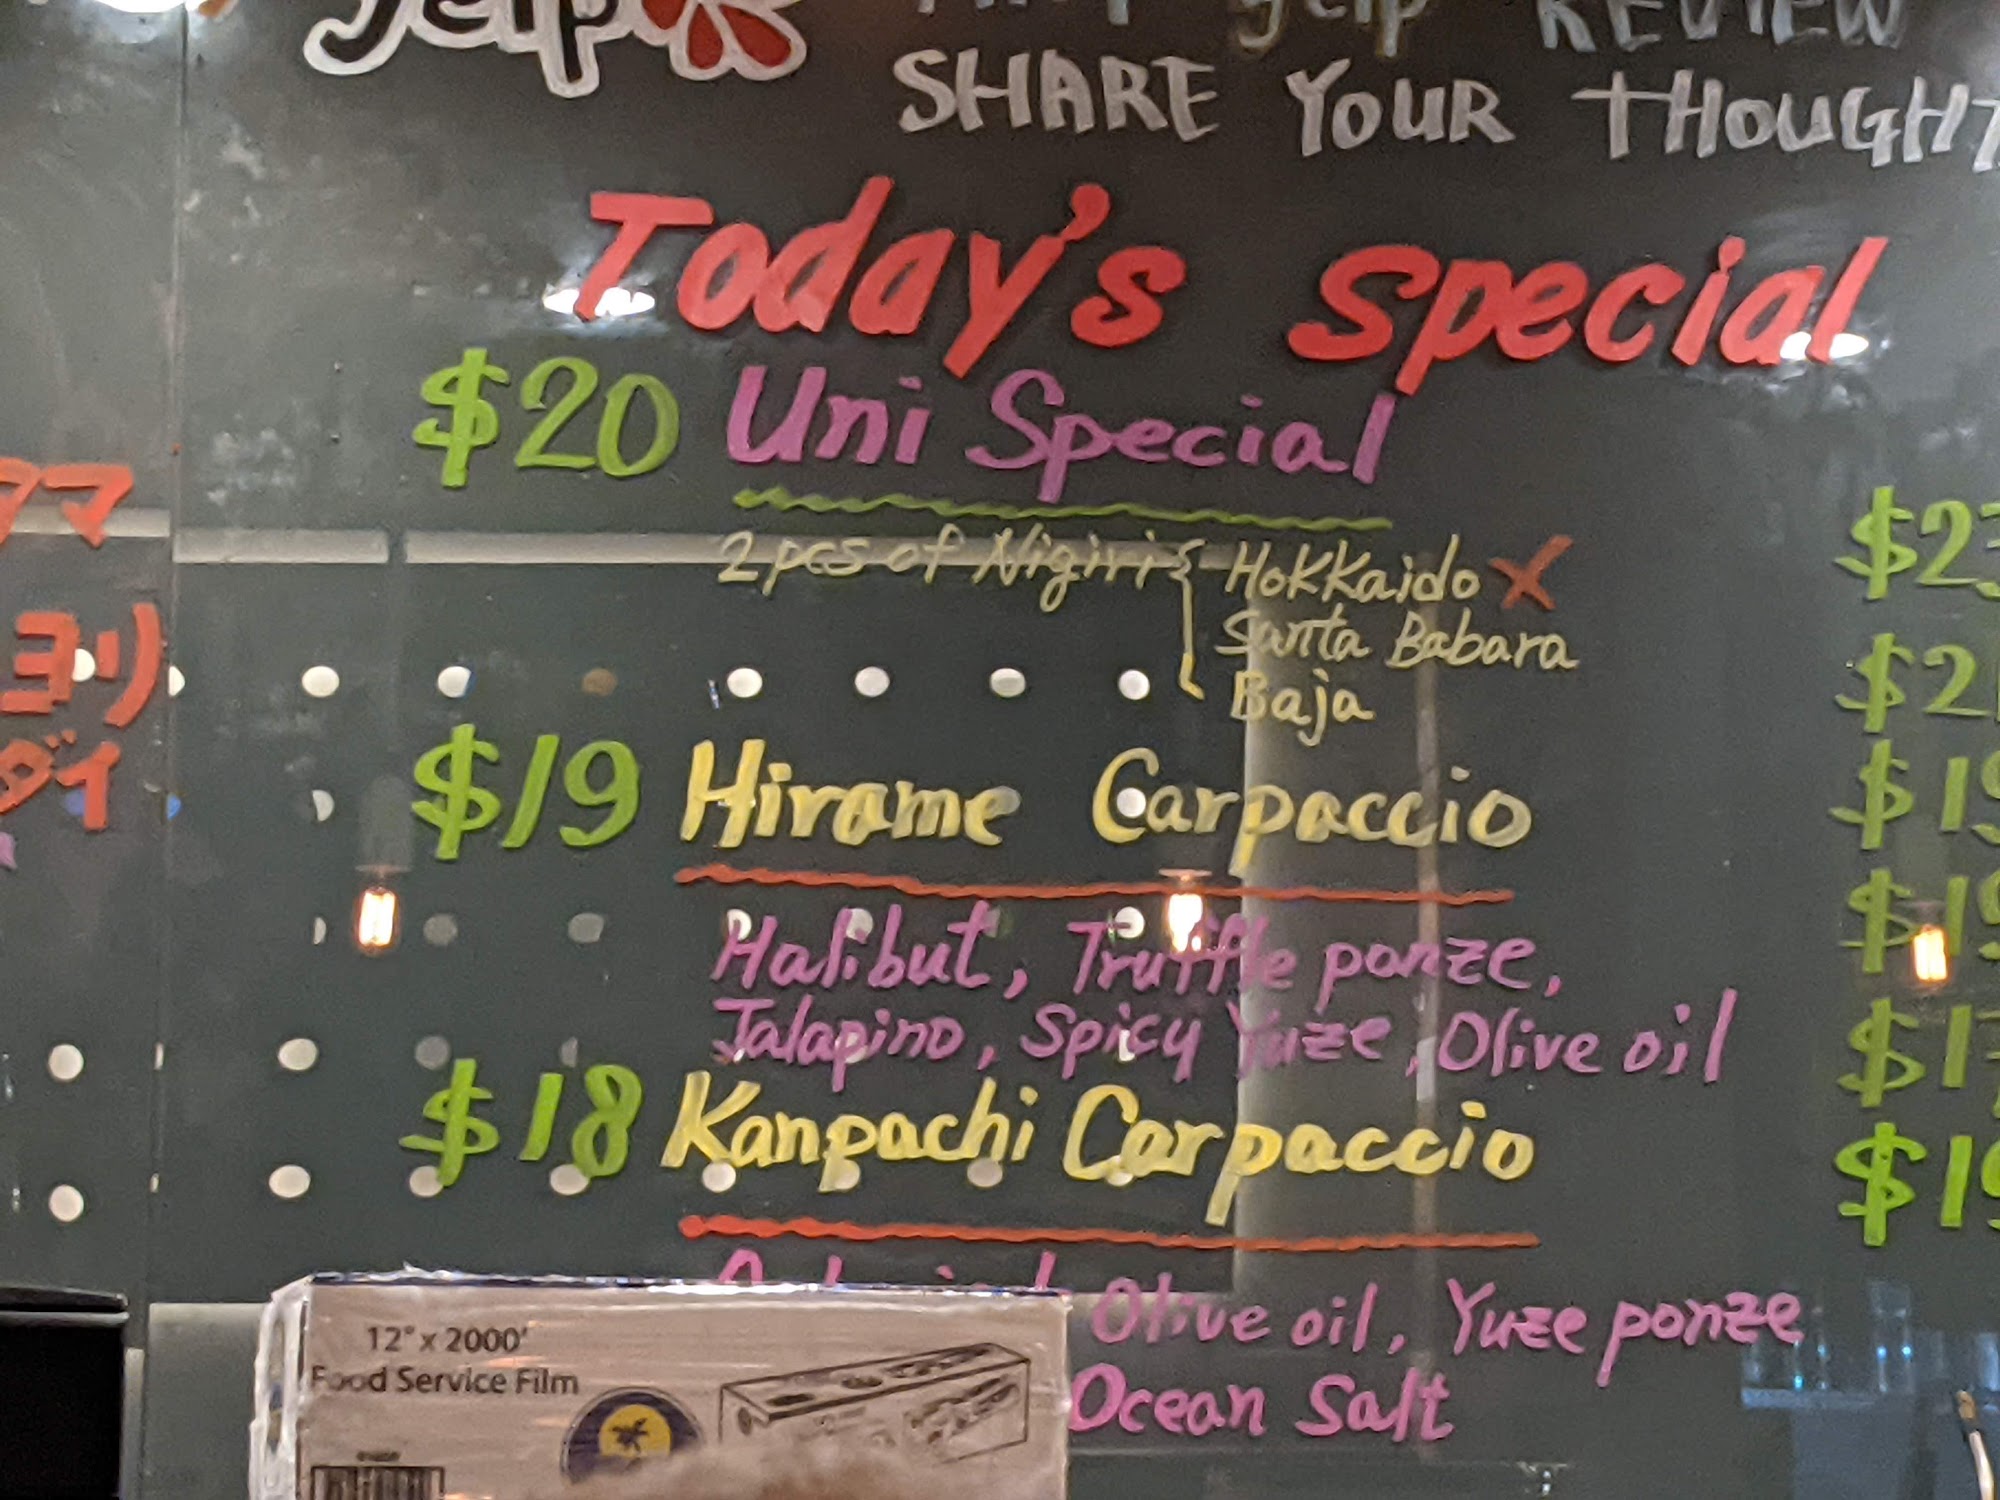 yelp
yelp REVIEW
SHARE YOUR THOUGHT
Today's Special
$20 Uni Special
2 pcs of Nigiri { Hokkaido X
Santa Babara
Baja
$19 Hirame Carpaccio
Halibut, Truffle ponze,
Jalapino, Spicy Yuze, Olive oil
$18 Kanpachi Carpaccio
Olive oil, Yuze ponze
Ocean Salt
タマ
ヨリ
ダイ
$23
$21
$19
$19
$1
$19
12" x 2000'
Food Service Film